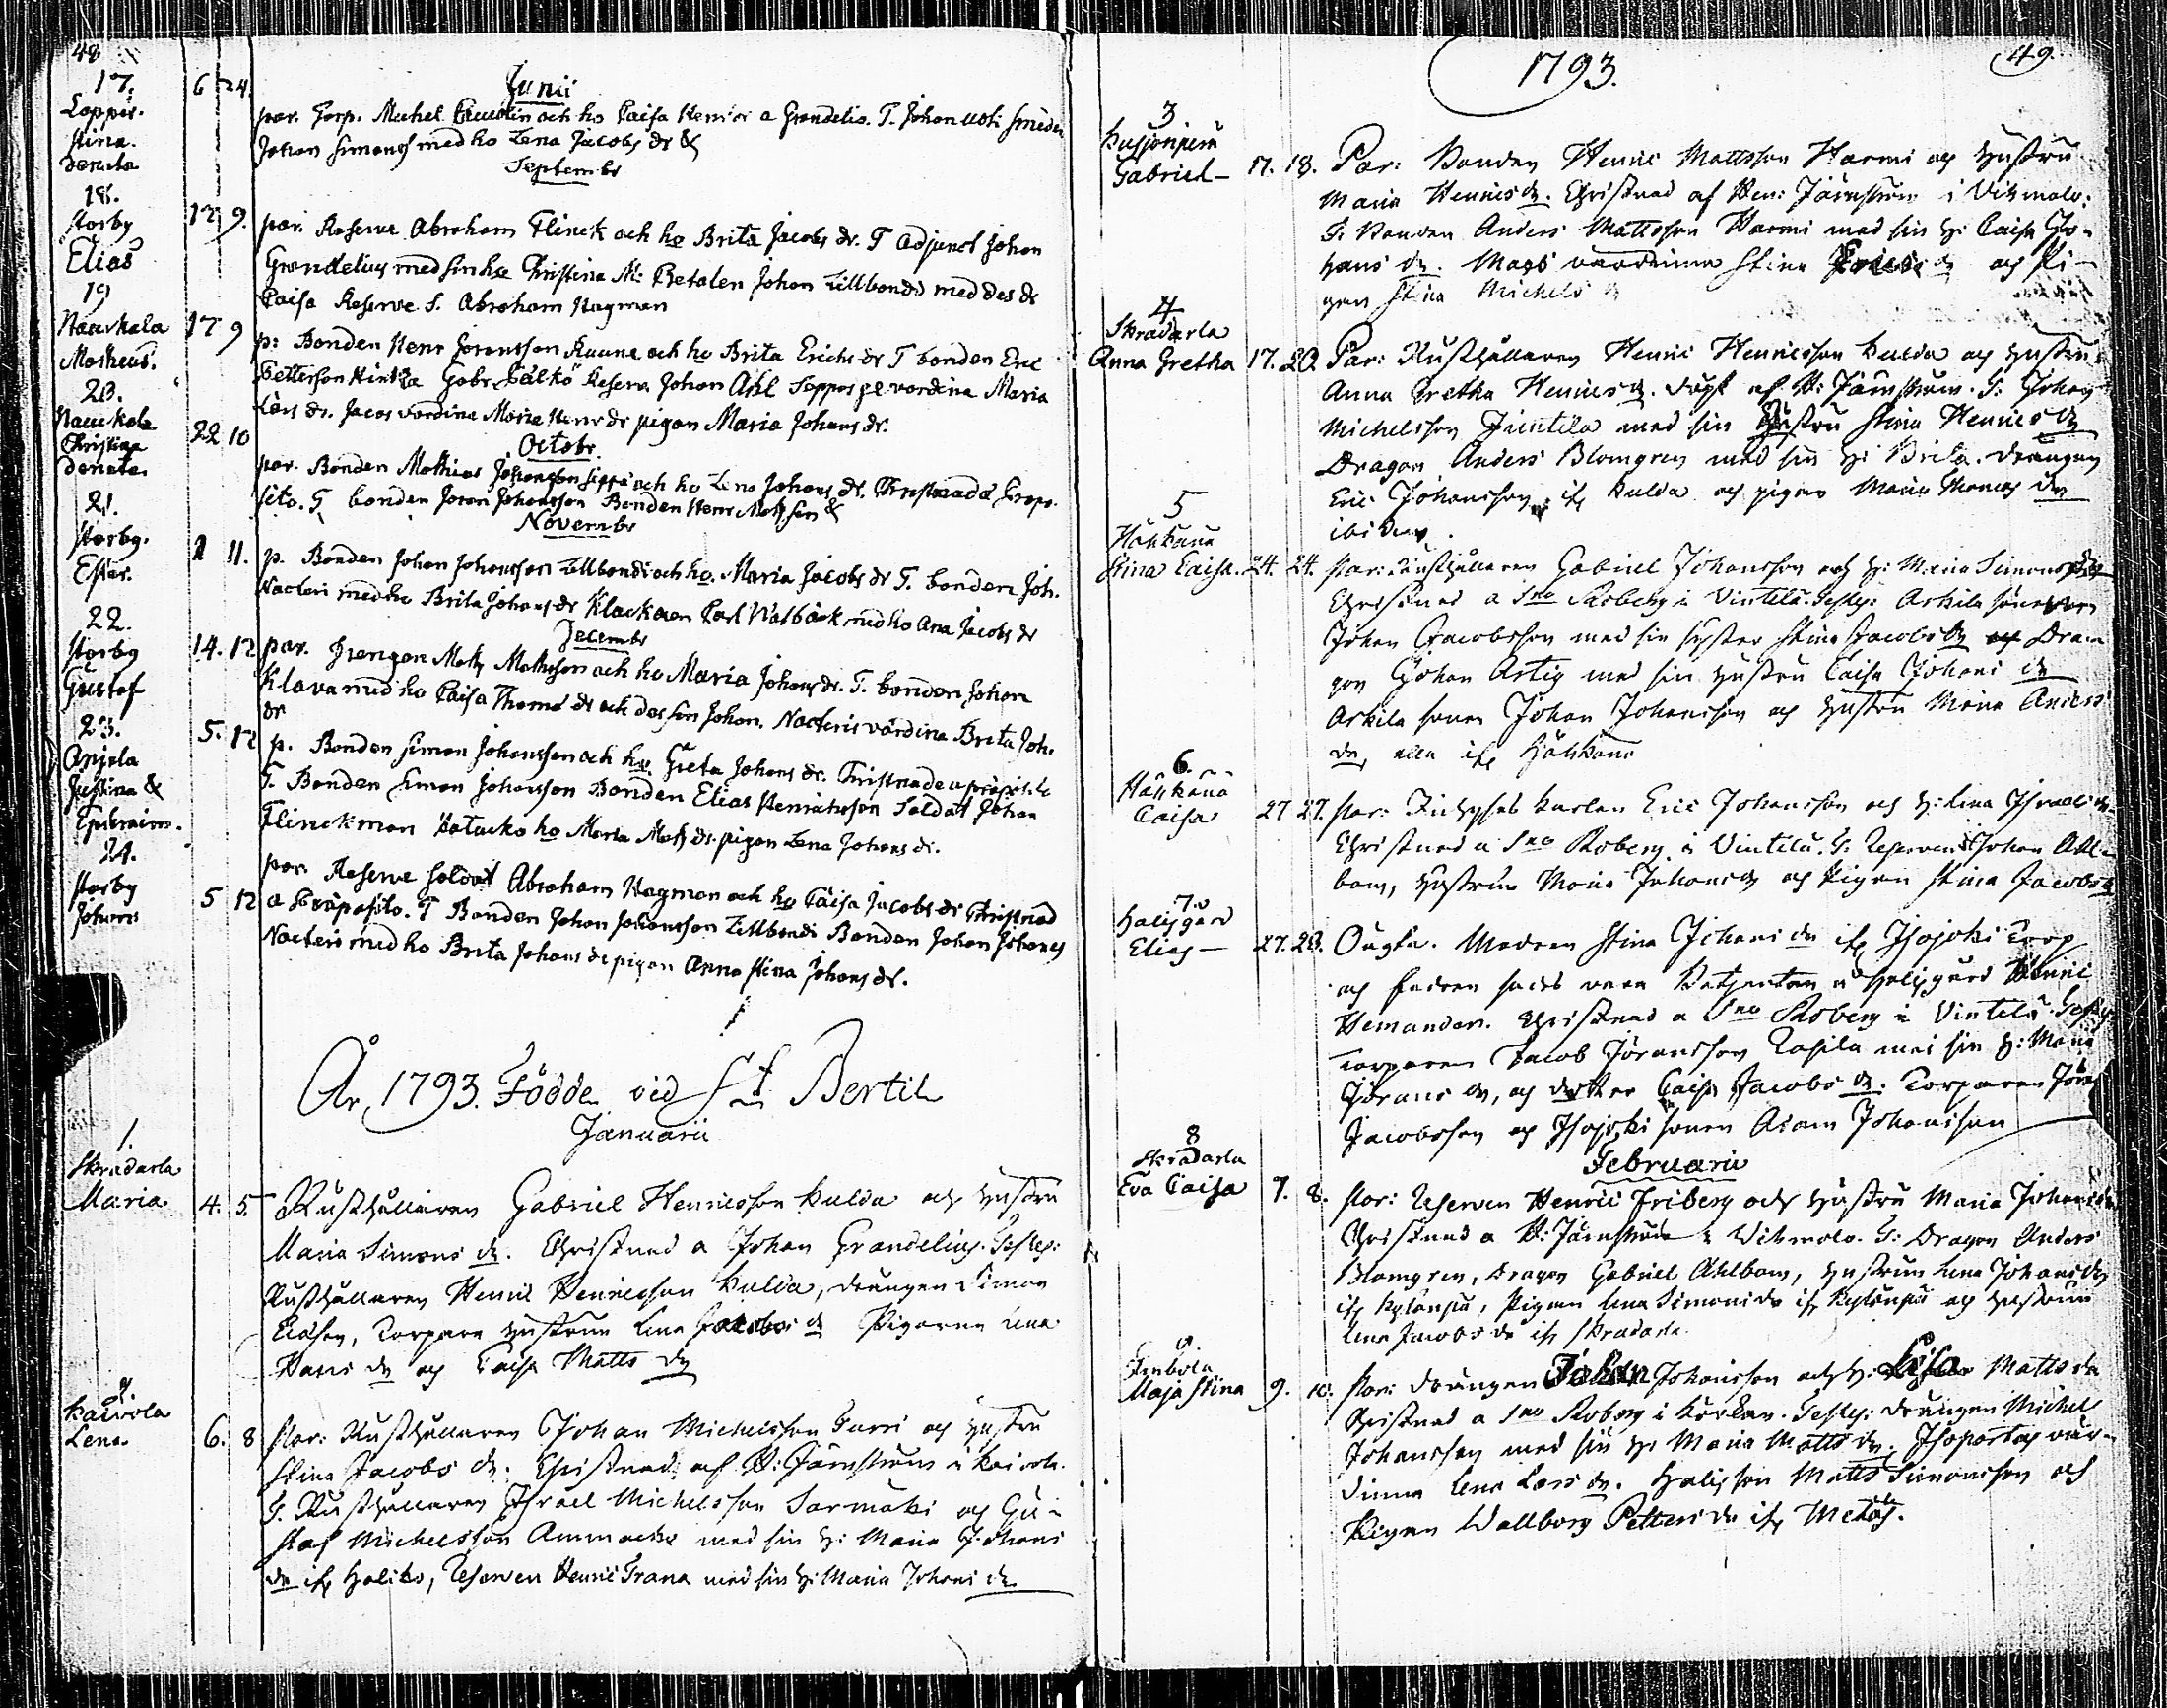 48
Junii
17.
Loppis.
Stina.
denata
6 24.
par. Torp. Michel och ho Caisa Henrici a Grandelio. T. Johan Smeden
Johan Simonss med ho Lena Jacobs dr &
Septembr
18.
Storby
Elias
12 9.
par. Reserve Abraham Flinck och ho Brita Jacobs dr. T Adjunct Johan
Grandelius med sin ho Christina M: Betalen Johan Lillbonds med des dr
Caisa Reserve S. Abraham Hagman
19
Naukala
Matheus.
17 9
p: Bonden Henr Joransson och ho Brita Erichs dr T bonden Eric
Pettersson Gabr. Pälkö Reserv Johan Ahl Seppas vordina Maria
Lars dr. Jacos vordina Maria Henr dr pigan Maria Johans dr.
20.
Naukala
Christina
denata.
22 10
Octobr.
par. Bonden Mathias Johansson Seppä och ho Lena Johans dr. Christnad a Præpo-
sito. T. bonden Joran Johansson Bonden Henr Matsson &
Novembr
21.
Storby.
Ester.
1 11.
p. Bonden Johan Johansson Lillbonds och ho. Maria Jacobs dr T. bonden Joh.
Nacteri med ho Brita Johans dr Klockaren Carl Walbäck med ho Ana Jacobs dr
Decembr
22.
Storby
Gustof
14. 12
par. Drengen Mats Mathsson och ho Maria Johans dr. T. bonden Johan
Klava med ho Caisa Thomæ dr och des son Johan. Nacteris värdina Brita Joh.
dr
23.
Anjala
Justina &
Ephraim.
5. 12
p. Bonden Simon Johansson och ho. Greta Johans dr. Christnade a præposito
T. Bonden Simon Johansson Bonden Elias Henrichsson Soldat Johan
Flinckman ho Maria Mats dr. pigan Lena Johans dr.
24.
Storby
Johans
5 12
par. Reserve Soldat Abraham Hagman och ho Caisa Jacobs dr Christnad
a Præposito. T Bonden Johan Johansson Lillbonds Bonden Johan Johanss
Nacteri med ho Brita Johans dr pigan Anna Stina Johans dr.
År 1793. Födde vid St Bertil
Januarii
1.
Skradarla
Maria.
4. 5.
Rusthållaren Gabriel Henricsson Kulda och hustru
Maria Simons dr. Christnad a Johan Grandelius. Testes:
Rusthållaren Henric Henricsson Kulda, drängen Simon
Ericson, Torpare hustrun Lena Jacobs dr Pigorna Lena
Hans dr och Caisa Matts dr
2.
Kaivola
Lena.
6. 8
Par: Rusthållaren Johan Michelsson Turri och hustru
Stina Jacobs dr. Christnad af H: Järnström i Kaivola.
T. Rusthållaren Israel Michelsson Sarmaki och Gu-
staf Michelsson Ammacko med sin h: Maria Johans
dr if. Halikko, Reserven Henric Trana med sin h: Maria Johans dr
1793.
49.
3
Gabriel
17. 18.
Par: Bonden Henric Mattsson Harmi och hustru
Maria Henrics dr. Christnad af Hen: Järnström i Vihmalo.
T. Bonden Anders Mattsson Harmi med sin h: Caisa Jo-
hans dr. värdinna Stina och Pi-
gan Stina Michels dr
4
Skradarla
Anna Gretha
17. 20.
Par: Rusthållaren Henric Henricsson Kulda och hustru
Anna Gretha Henrics dr. Döpt af H: Järnström. T: Johan
Michelsson Juntila med sin hustru Stina Henrics dr
Dragon Anders Blomgren med sin h: Brita. Drängen
Eric Johansson if. Kulda och pigan Maria Thomas dr
ibidem.
5
Häkkänä
Stina Caisa.
24. 24.
Par: Rusthållaren Gabriel Johansson och h: Maria Simons dr
Christnad a Dno Roberg i Vintela. Testes: Arkila sonen
Johan Jacobsson med sin syster Stina Jacobs dr Dra-
gon Johan Artig med sin hustru Caisa Johans dr
Arkila sonen Johan Johansson och hustru Maria Anders
dr, alla if. Häkkänä
6.
Häkkänä
Caisa
27 27.
Par: karlen Eric Johansson och h: Lina Israels dr
Christnad a Dno Roberg i Vintela. T. Reserven Johan Ahl-
bom, hustrun Maria Johans dr och Pigan Stina Jacobs dr
7.
Halisgård
Elias
27. 28.
Oägta. Modren Stina Johans dr if. Isojoki Torp
och fadren sades vara Betjenten i Halisgård Henric
Hemander. Christnad a Dno Roberg i Vintela. Testes
Torparen Jacob Jöransson Tapila med sin h: Maria
Jörans dr, och dotter Caisa Jacobs dr. Torparen Jöran
Jacobsson och Isojoki sonen Adam Johansson
Februarii
8
Skradarla
Eva Caisa
7. 8.
Par: Reserven Henric Friberg och hustru Maria Johans dr
Christnad a H: Järnström i Vihmalo. T: Dragon Anders
Blomgren, Dragon Gabriel Ahlbom, hustrun Lena Johans dr
if. Kylänpä, Pigan Lena Simons dr if. Kylänpä och hustrun
Lena Jacobs dr if. Skradarla
9.
Imbola
Maja Stina
9. 10.
Par: drängen Johan Johansson och h: Lisa Matts dr
Christnad a Dno Roberg i Kärkar. Testes: drängen Michel
Johansson med sin h: Maria Matts dr. Isopartas vär-
dinna Lena Lars dr. Halis son Matts Simonsson och
Pigan Wallborg Petters dr if. Metäs.